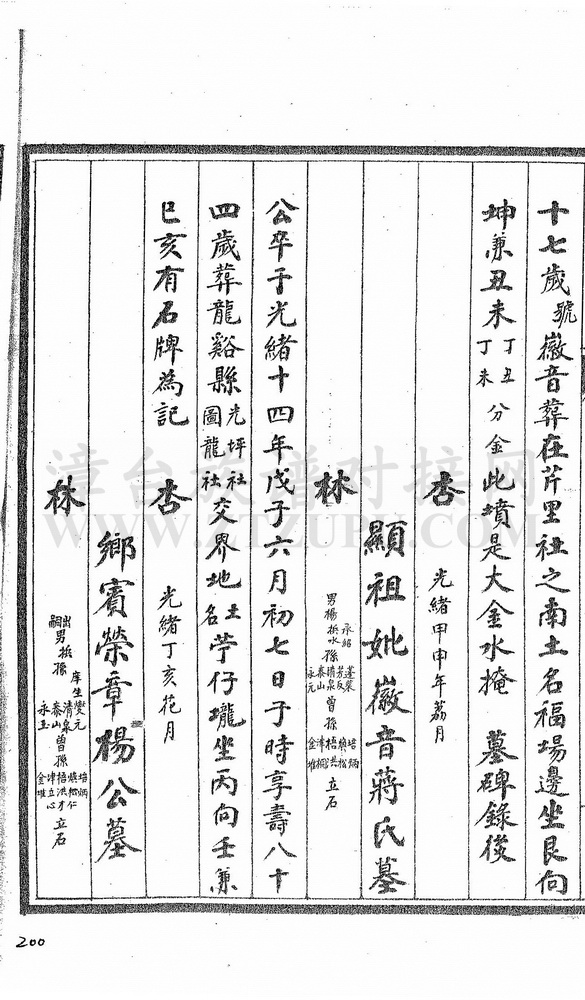 十七歲號徽音葬在芹里社之南土名福場邊坐艮向
坤兼丑未丁丑丁未分金此墳是大金水掩 墓碑錄後
杏 光緒甲申年荔月
顯祖妣徽音蔣氏墓
林 孫 曾孫 立石
公卒于光緒十四年戊子六月初七日子時享壽八十
四歲葬龍谿縣光坪社圖龍社交界地土名苧仔壠坐丙向壬兼
巳亥有石牌為記
杏 光緒丁亥花月
鄉賓榮章楊公墓
林 男 孫 曾孫 立石
漳台族譜对接网
WWW.ZTZUPU.COM
200